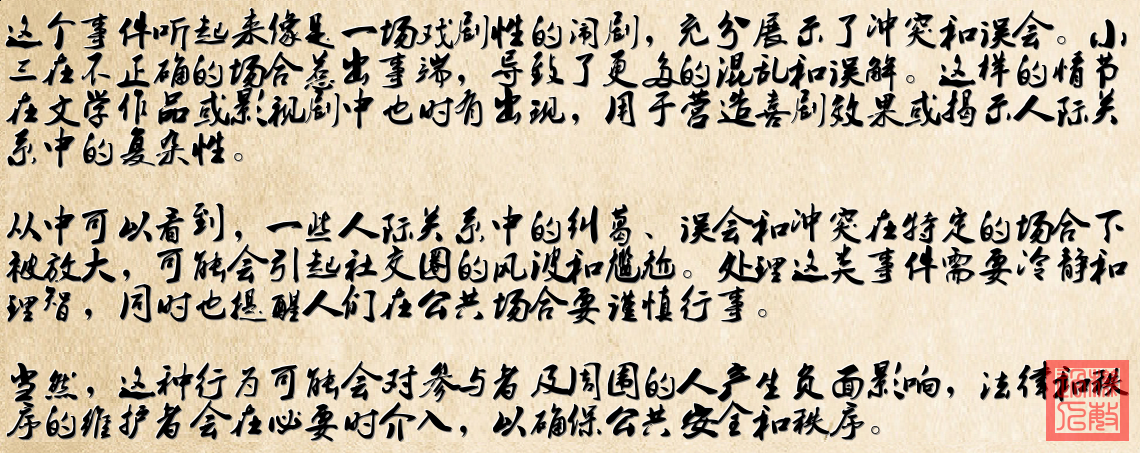 这个事件听起来像是一场戏剧性的闹剧，充分展示了冲突和误会。小
三在不正确的场合惹出事端，导致了更多的混乱和误解。这样的情节
在文学作品或影视剧中也时有出现，用于营造喜剧效果或揭示人际关
系中的复杂性。
从中可以看到，一些人际关系中的纠葛、误会和冲突在特定的场合下
被放大，可能会引起社交圈的风波和尴尬。处理这类事件需要冷静和
理智，同时也提醒人们在公共场合要谨慎行事。
当然，这种行为可能会对参与者及周围的人产生负面影响，法律和秩
序的维护者会在必要时介入，以确保公共安全和秩序。